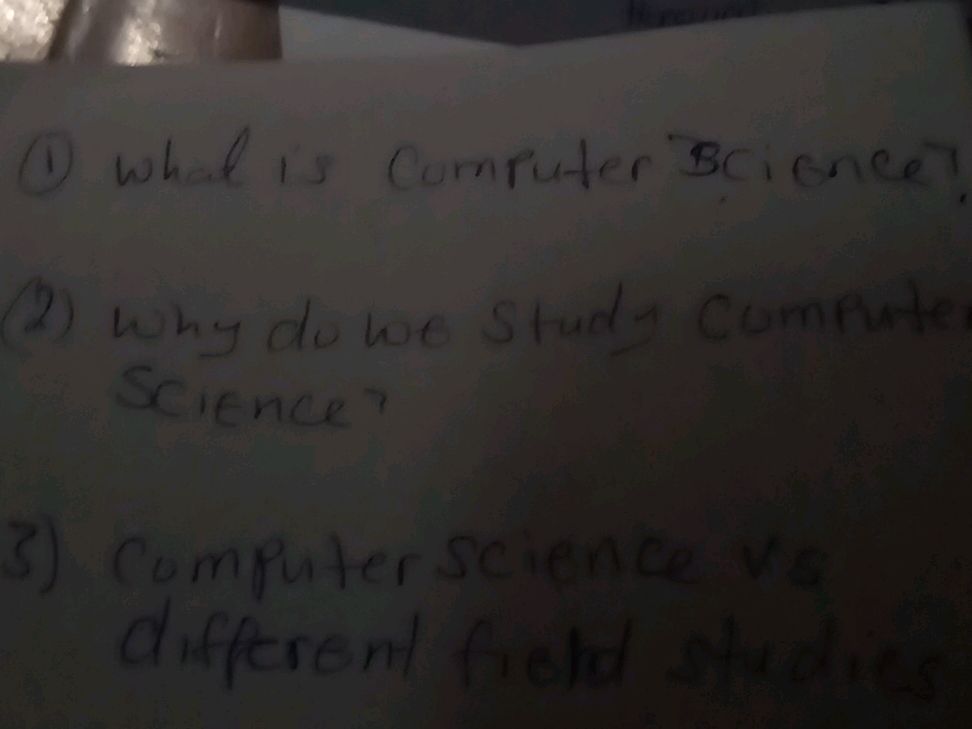 ① what is Computer Science?
(2) why do we study Computer
Science?
3) Computer science vs
different field studies